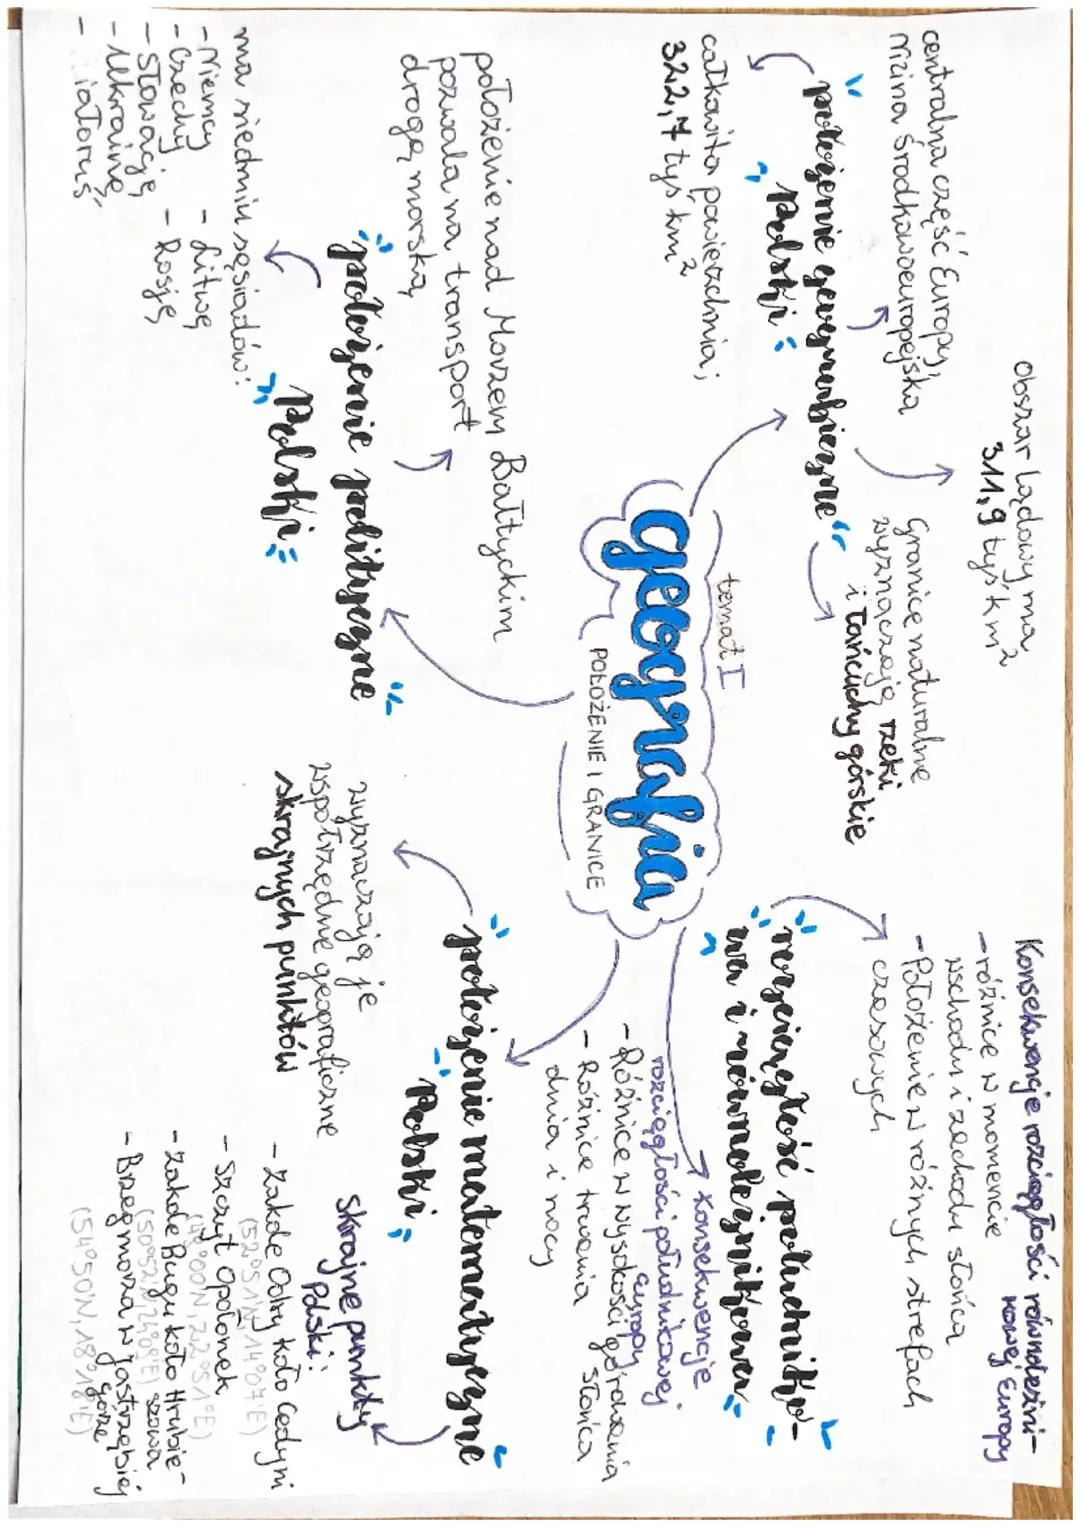 temat I
Geografia
POŁOŻENIE I GRANICE
"położenie geograficzne
Polski"
centralna część Europy,
Nizina Środkowoeuropejska
całkowita powierzchnia;
322,7 tyś km²
Obszar lądowy ma
311,9 tyś km²
Granice naturalne
wyznaczają rzeki
i łańcuchy górskie
"położenie polityczne"
Polski"
położenie nad Morzem Bałtyckim
pozwala na transport
drogą morską
ma siedmiu sąsiadów:
- Niemcy
- Czechy
- Słowację
- Ukrainę
- iatoruś
- Litwę
- Rosję
"rozciągłość południko-
wa i równoleżnikowa"
Konsekwencje rozciągłości równoleżni-
kowej Europy
- różnice w momencie
wschodu i zachodu słońca
- Położenie w różnych strefach
czasowych
Konsekwencje
rozciągłości południkowej
Europy
- Różnice w wysokości górowania
słońca
- Różnice trwania
dnia i nocy
"położenie matematyczne
Polski"
wyznaczają je
współrzędne geograficzne
skrajnych punktów
Skrajne punkty
Polski:
- Zakole Odry koło Cedyni
(52°51'N, 14°07'E)
- Szczyt Opołonek
(49°00'N, 22°51'E)
- Zakole Bugu koło Hrubie-
szowa
(50°52'N, 24°08'E)
- Brzeg morza w Jastrzębiej
górze
(54°50'N, 18°18'E)